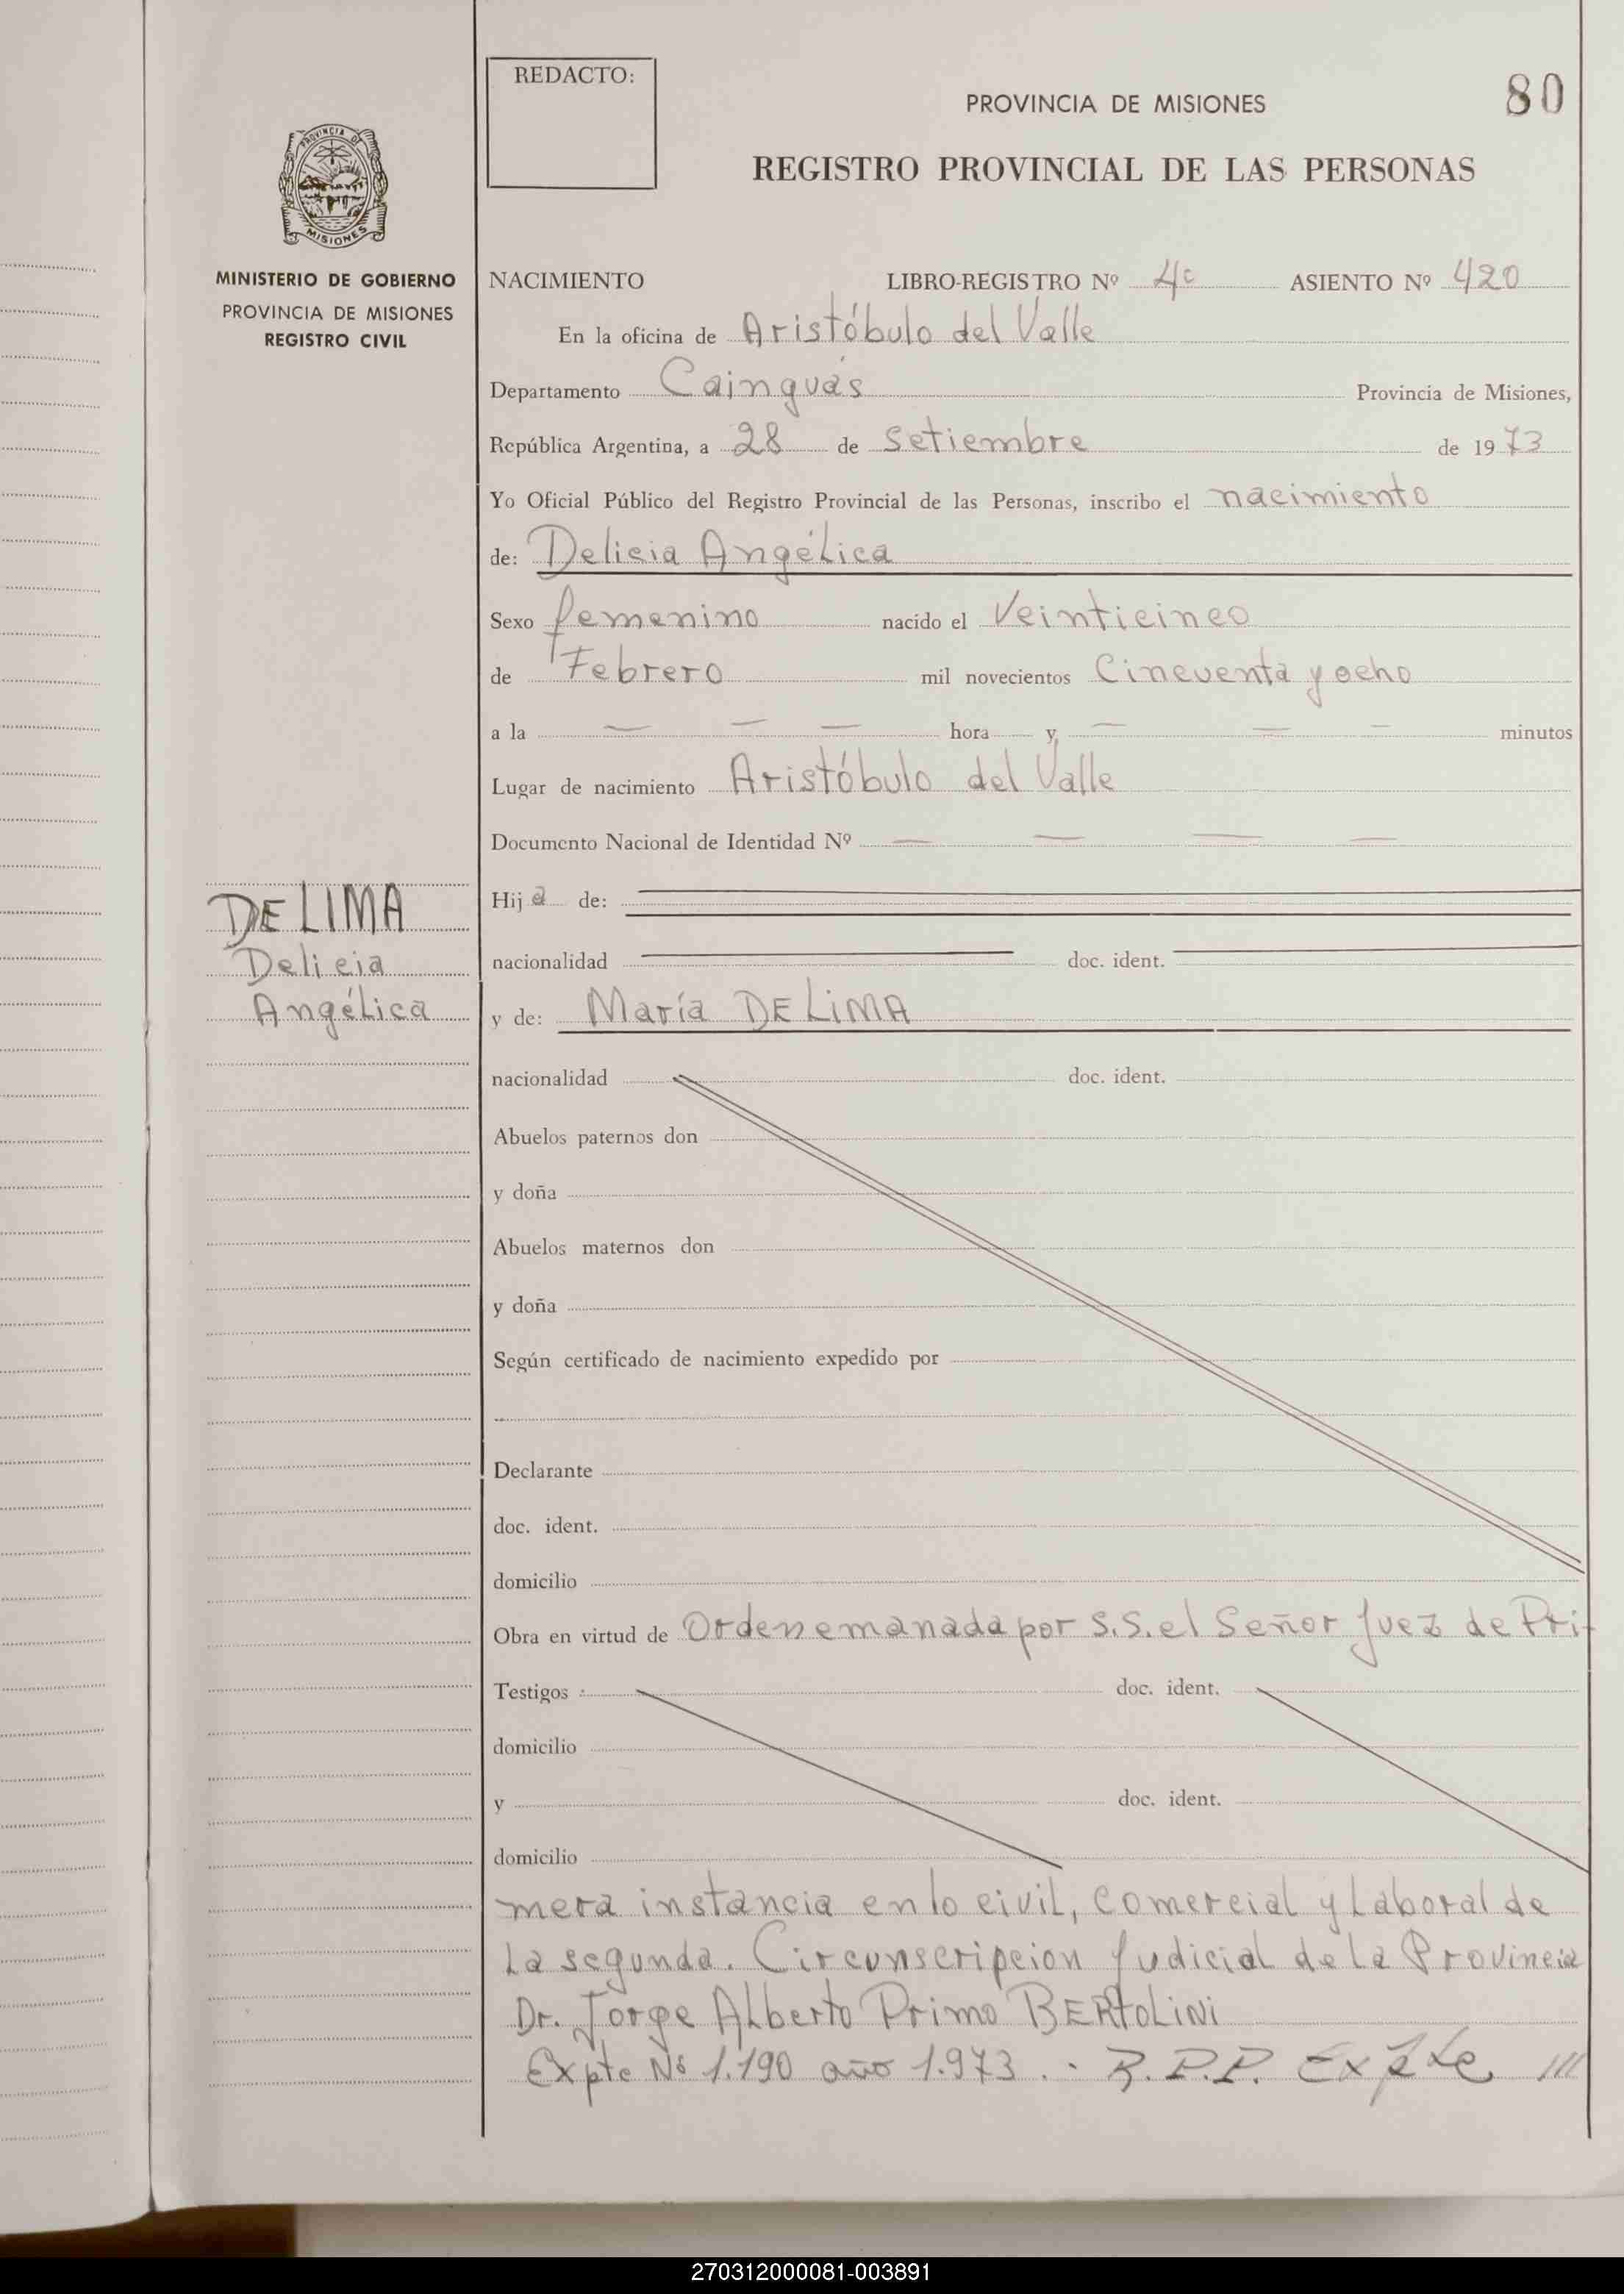 REDACTO:
PROVINCIA DE MISIONES
80
REGISTRO PROVINCIAL DE LAS PERSONAS
PROVINCIA DE
MISIONES
MINISTERIO DE GOBIERNO
PROVINCIA DE MISIONES
REGISTRO CIVIL
NACIMIENTO LIBRO-REGISTRO Nº 4º ASIENTO Nº 420
En la oficina de Aristóbulo del Valle
Departamento Cainguás Provincia de Misiones,
República Argentina, a 28 de setiembre de 1973
Yo Oficial Público del Registro Provincial de las Personas, inscribo el nacimiento
de: Delicia Angélica
Sexo femenino nacido el Veinticinco
de Febrero mil novecientos Cincuenta y ocho
a la — — — hora y — — — minutos
Lugar de nacimiento Aristóbulo del Valle
Documento Nacional de Identidad Nº — — — —
Hija de:
nacionalidad doc. ident.
DE LIMA
Delicia
Angélica
y de: María DE LIMA
nacionalidad doc. ident.
Abuelos paternos don
y doña
Abuelos maternos don
y doña
Según certificado de nacimiento expedido por
Declarante
doc. ident.
domicilio
Obra en virtud de Orden emanada por S.S. el Señor Juez de Pri-
Testigos : doc. ident.
domicilio
y doc. ident.
domicilio
mera instancia en lo civil, comercial y Laboral de
La segunda. Circunscripcion Judicial de La Provincia
Dr. Jorge Alberto Primo BERTOLINI
Expte Nº 1.190 año 1.973 . - R.P.P. Expte ///
270312000081-003891